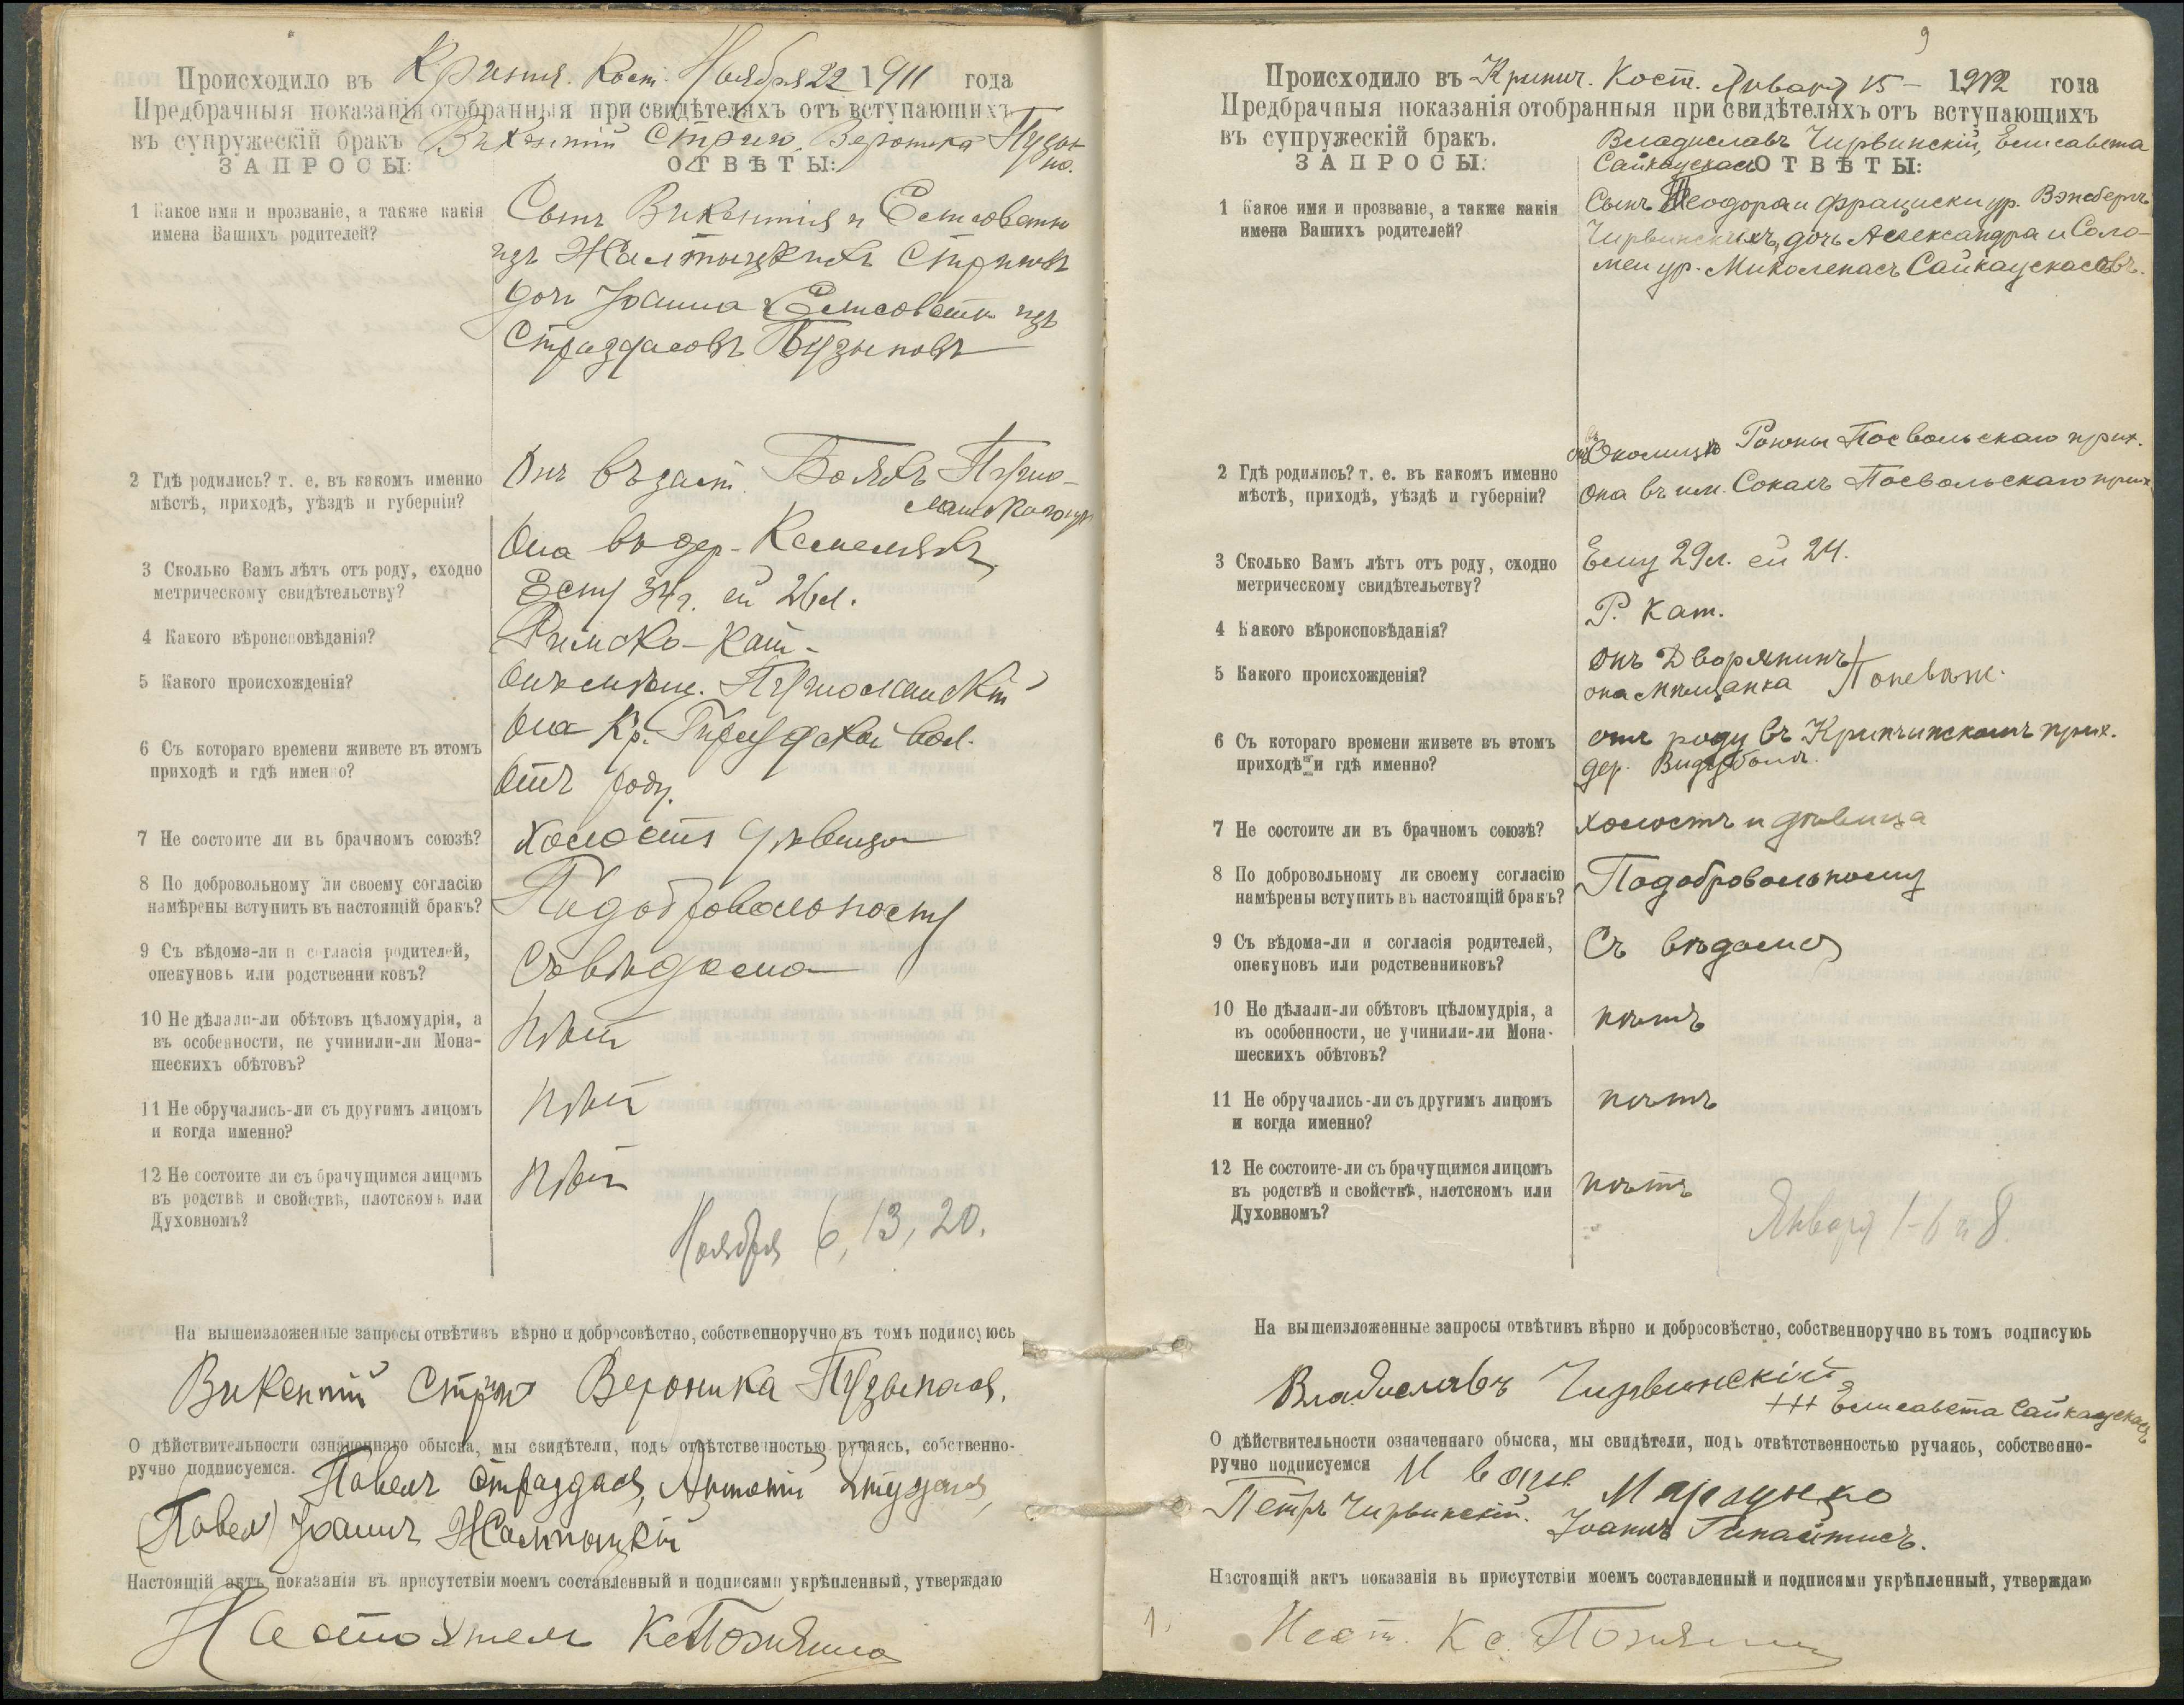 Происходило въ Кринч. Кост. Ноября 22 1911 года
Предбрачныя показанія отобранныя при свидѣтеляхъ отъ вступающихъ
въ супружескій бракъ Викентій Вероника
ЗАПРОСЫ: ОТВѢТЫ:
1 Какое имя и прозваніе, а также какія
имена Вашихъ родителей?
Сынъ Викентія и
изъ
дочь Іоанна изъ
Страздасовъ Пузыновъ
2 Гдѣ родились? т. е. въ какомъ именно
мѣстѣ, приходѣ, уѣздѣ и губерніи?
Онъ въ заст.
Она въ дер.
3 Сколько Вамъ лѣтъ отъ роду, сходно
метрическому свидѣтельству?
Ему 34 г. ей 26 л.
4 Какого вѣроисповѣданія?
Римско-Кат-
5 Какого происхожденія?
Онъ мѣщ.
Она Кр. вол.
6 Съ котораго времени живете въ этомъ
приходѣ и гдѣ именно?
Отъ роду.
7 Не состоите ли въ брачномъ союзѣ?
холостъ дѣвица
8 По добровольному ли своему согласію
намѣрены вступить въ настоящій бракъ?
Подобровольному
9 Съ вѣдома-ли и согласія родителей,
опекуновъ или родственниковъ?
Съ вѣдома
10 Не дѣлали-ли обѣтовъ цѣломудрія, а
въ особенности, не учинили-ли Мона-
шескихъ обѣтовъ?
нѣтъ
11 Не обручались-ли съ другимъ лицомъ
и когда именно?
нѣтъ
12 Не состоите ли съ брачущимся лицомъ
въ родствѣ и свойствѣ, плотскомъ или
Духовномъ?
нѣтъ
Ноября 6, 13, 20.
На вышеизложенные запросы отвѣтивъ вѣрно и добросовѣстно, собственноручно въ томъ подписуюсь
Викентій Вероника Пузынасъ.
О дѣйствительности означеннаго обыска, мы свидѣтели, подъ отвѣтственностью ручаясь, собственно-
ручно подписуемся. Павелъ Страздасъ, Антоній
(Павел) Іоаннъ
Настоящій актъ показанія въ присутствіи моемъ составленный и подписями укрѣпленный, утверждаю
Настоятель Кс.
9
Происходило въ Кринч. Кост. Января 15 - 1912 года
Предбрачныя показанія отобранныя при свидѣтеляхъ отъ вступающихъ
въ супружескій бракъ. Владиславъ Чирвинскій, Елисавета
ЗАПРОСЫ: Сайкаускасъ ОТВѢТЫ:
1 Какое имя и прозваніе, а также какія
имена Вашихъ родителей?
Сынъ Теодора и Фрациски ур.
Чирвинскихъ, дочь Александра и Соло-
меи ур. Миколенасъ Сайкаускасовъ.
2 Гдѣ родились? т. е. въ какомъ именно
мѣстѣ, приходѣ, уѣздѣ и губерніи?
Посвольскаго прих.
Она въ им. Сокахъ Посвольскаго прих.
3 Сколько Вамъ лѣтъ отъ роду, сходно
метрическому свидѣтельству?
Ему 29 л. ей 24.
4 Какого вѣроисповѣданія?
Р. Кат.
5 Какого происхожденія?
Онъ Дворянинъ
она мѣщанка Поневѣж.
6 Съ котораго времени живете въ этомъ
приходѣ и гдѣ именно?
отъ роду въ Кринчинскомъ прих.
дер.
7 Не состоите ли въ брачномъ союзѣ?
холостъ и дѣвица
8 По добровольному ли своему согласію
намѣрены вступить въ настоящій бракъ?
Подобровольному
9 Съ вѣдома-ли и согласія родителей,
опекуновъ или родственниковъ?
Съ вѣдома
10 Не дѣлали-ли обѣтовъ цѣломудрія, а
въ особенности, не учинили-ли Мона-
шескихъ обѣтовъ?
нѣтъ
11 Не обручались-ли съ другимъ лицомъ
и когда именно?
нѣтъ
12 Не состоите-ли съ брачущимся лицомъ
въ родствѣ и свойствѣ, плотскомъ или
Духовномъ?
нѣтъ
Января 1-6 и 8.
На вышеизложенные запросы отвѣтивъ вѣрно и добросовѣстно, собственноручно въ томъ подписуюь
Владиславъ Чирвинскій
+++ Елисавета Сайкаускасъ
О дѣйствительности означеннаго обыска, мы свидѣтели, подъ отвѣтственностью ручаясь, собственно-
ручно подписуемся
Петръ Чирвинскій. Іоаннъ
Настоящій актъ показанія въ присутствіи моемъ составленный и подписями укрѣпленный, утверждаю
1. Наст. Кс.